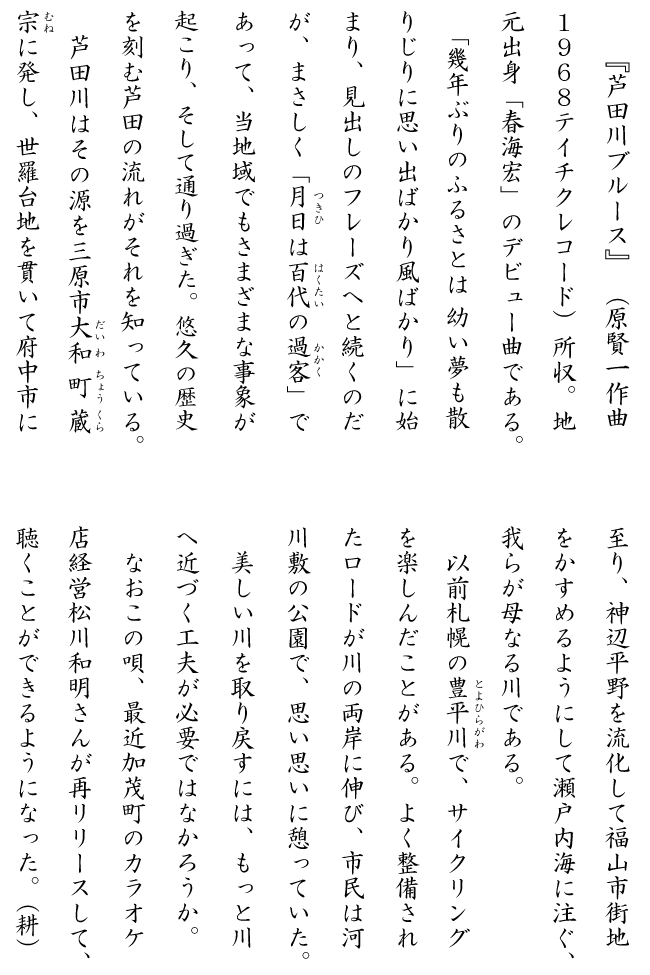 『芦田川ブルース』　（原賢一作曲
１９６８テイチクレコード）所収。地
元出身「春海宏」のデビュー曲である。
「幾年ぶりのふるさとは 幼い夢も散
りじりに思い出ばかり風ばかり」に始
まり、見出しのフレーズへと続くのだ
が、まさしく「月日は百代の過客」で
つきひ
はくたい
かかく
あって、当地域でもさまざまな事象が
起こり、そして通り過ぎた。悠久の歴史
を刻む芦田の流れがそれを知っている。
芦田川はその源を三原市大和町蔵
だいわ ちょう くら
宗に発し、世羅台地を貫いて府中市に
むね
至り、神辺平野を流化して福山市街地
をかすめるようにして瀬戸内海に注ぐ、
我らが母なる川である。
以前札幌の豊平川で、サイクリング
とよひらがわ
を楽しんだことがある。よく整備され
たロードが川の両岸に伸び、市民は河
川敷の公園で、思い思いに憩っていた。
美しい川を取り戻すには、もっと川
へ近づく工夫が必要ではなかろうか。
なおこの唄、最近加茂町のカラオケ
店経営松川和明さんが再リリースして、
聴くことができるようになった。（耕）